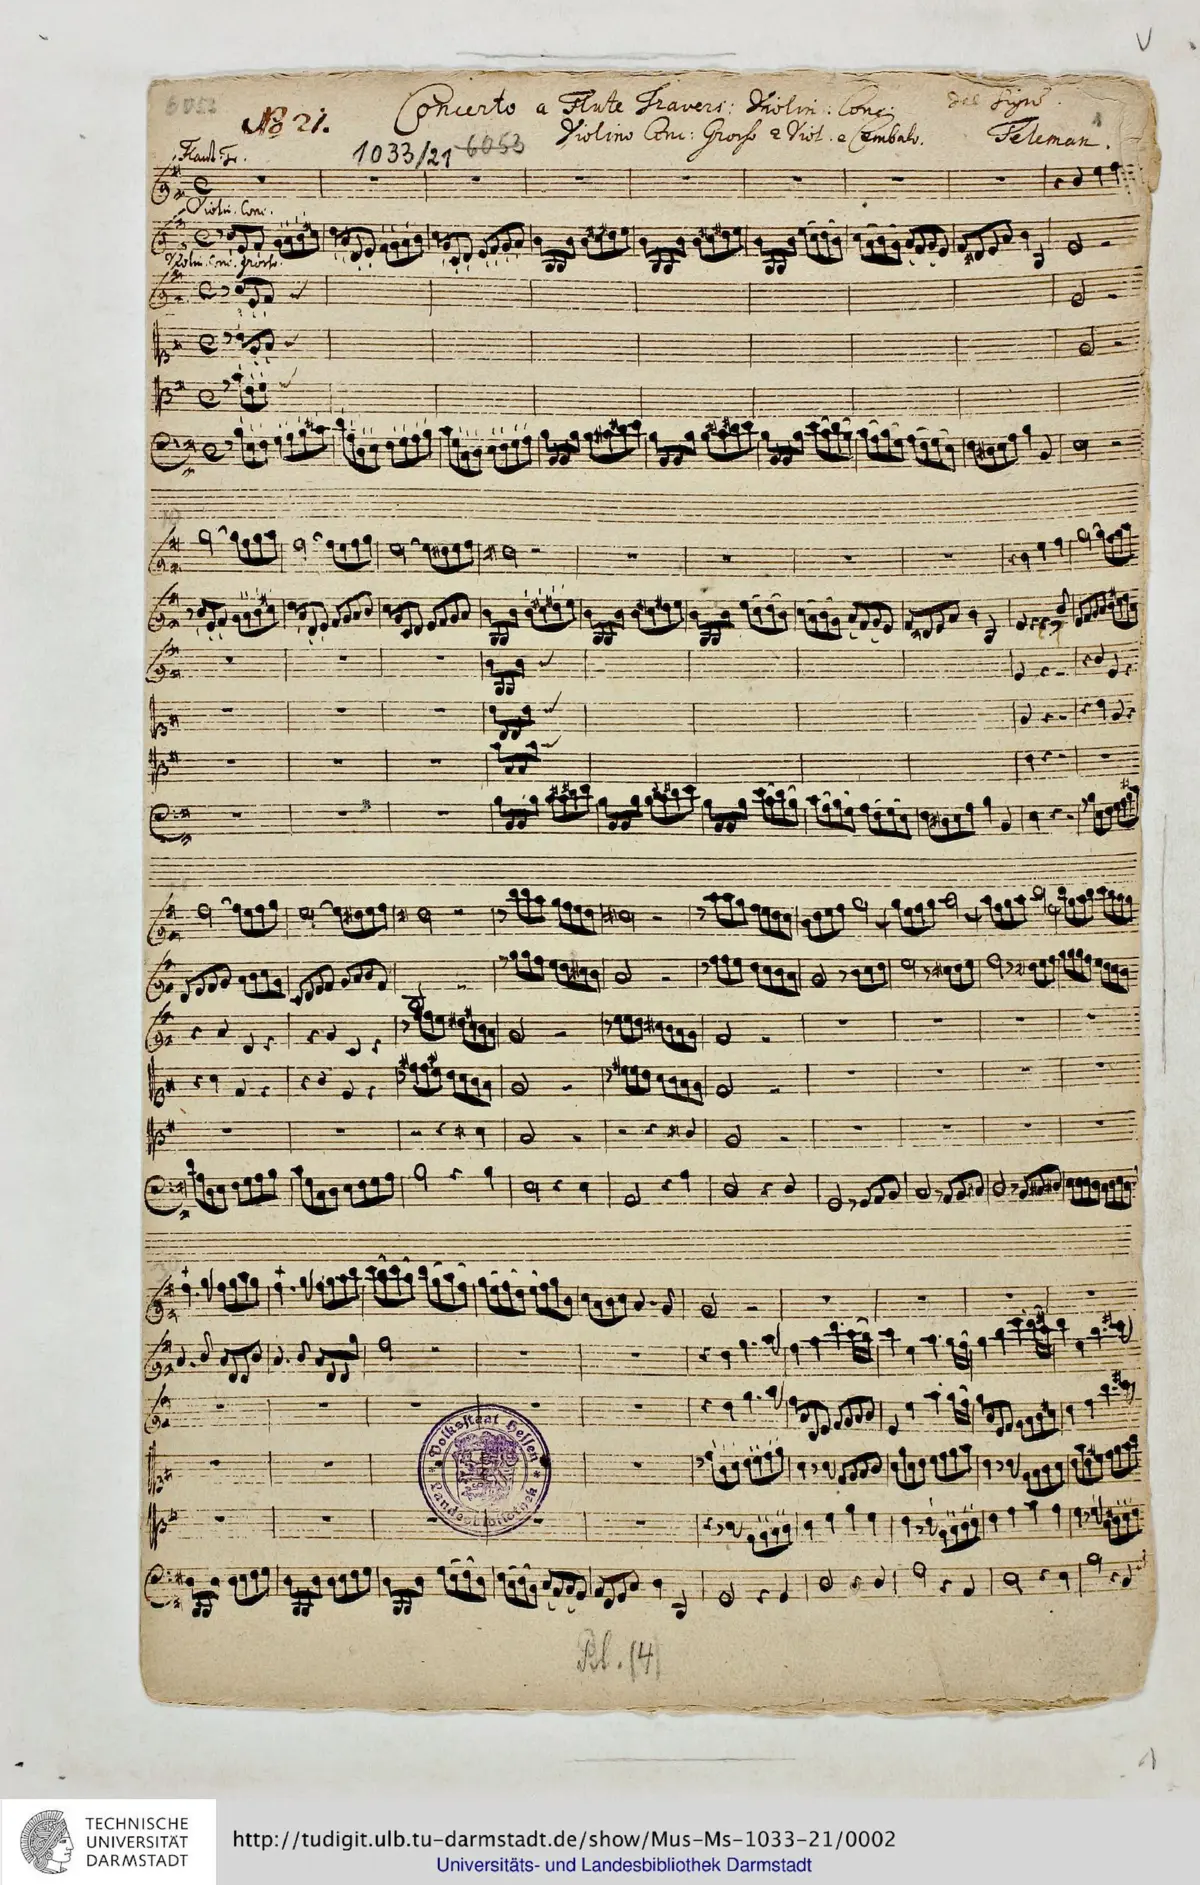 6053
No 21.
Concerto a Flute Travers: Violin: Conc:
del Sigre
1033/21 6053
Violino Conc: Grosso 2 Viol. e Cembalo.
Teleman.
1
Flaut: Tr.
Violin. Conc.
Violin. Conc. Grosso.
10
Volksstaat Hessen
Landesbibliothek
Bl. (4)
V
1
TECHNISCHE
UNIVERSITÄT
DARMSTADT
http://tudigit.ulb.tu-darmstadt.de/show/Mus-Ms-1033-21/0002
Universitäts- und Landesbibliothek Darmstadt